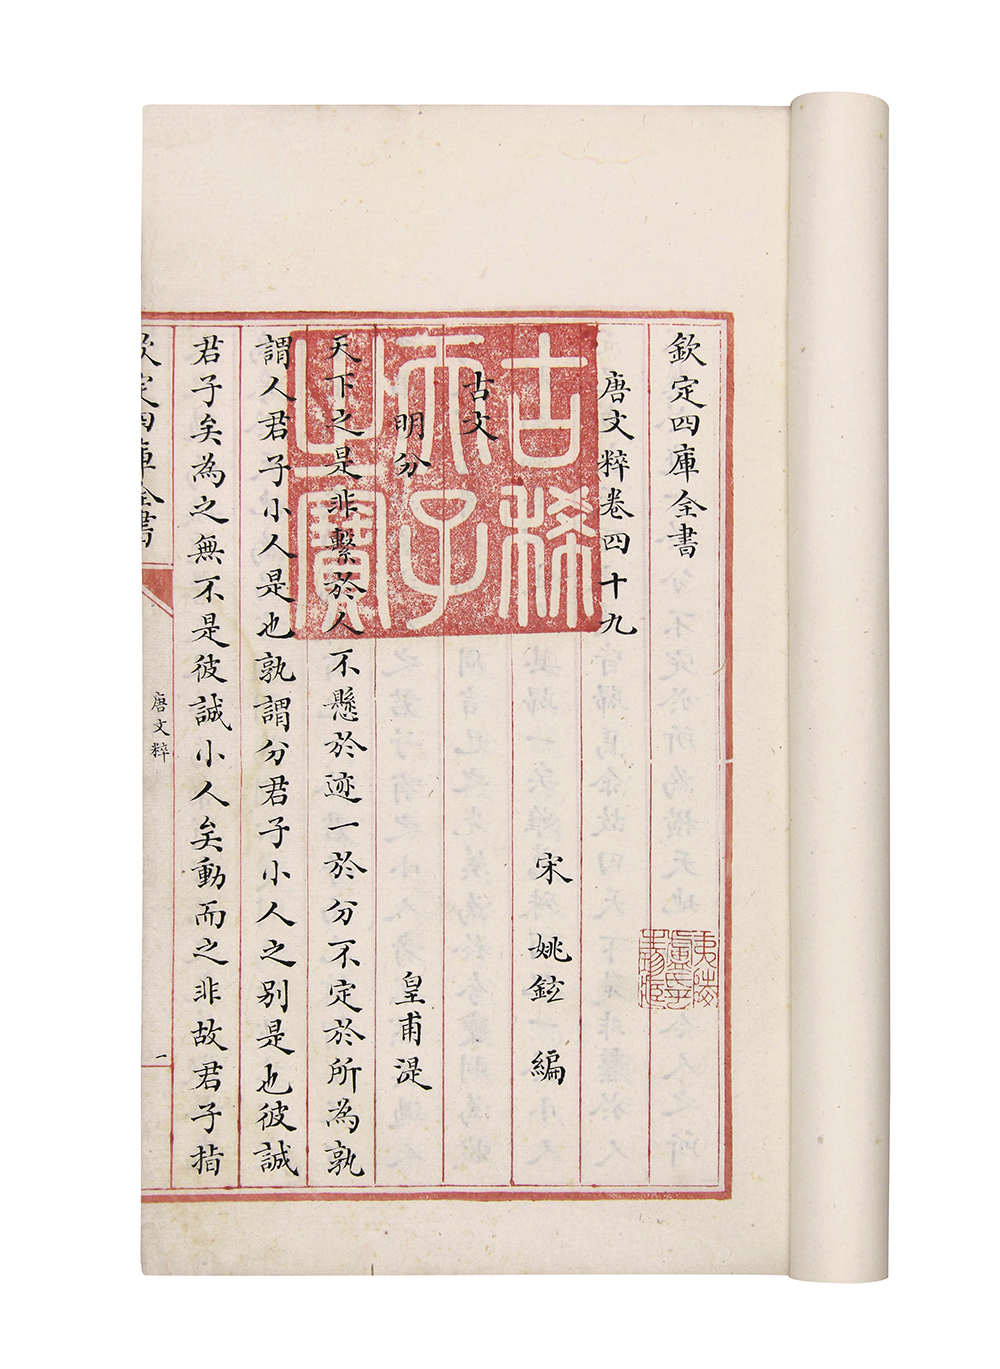 欽定四庫全書
唐文粹卷四十九
宋 姚鉉 編
古文
明分 皇甫湜
天下之是非繫於人不懸於迹一於分不定於所為孰
謂人君子小人是也孰謂分君子小人之别是也彼誠
君子矣為之無不是彼誠小人矣動而之非故君子指
欽定四庫全書
唐文粹
一
古稀
天子
之寶